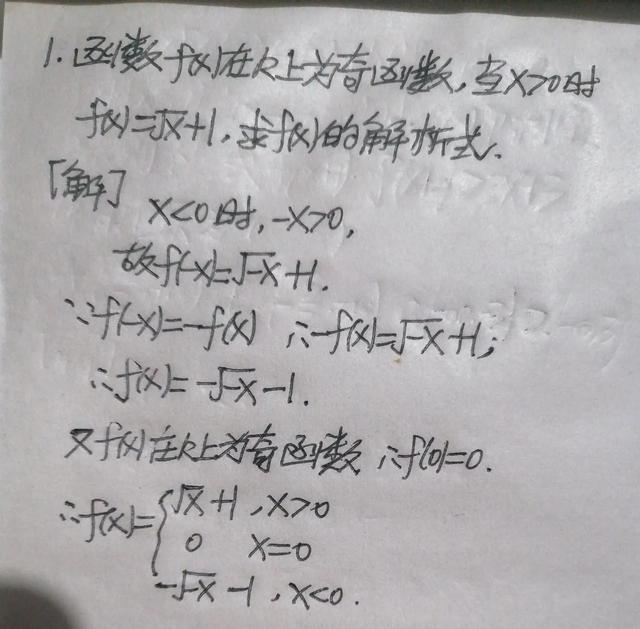 1.函数f(x)在R上为奇函数,当x>0时
f(x)=√x+1,求f(x)的解析式.
[解] x<0时,-x>0,
故f(-x)=√-x+1.
∵f(-x)=-f(x) ∴-f(x)=√-x+1;
∴f(x)=-√-x-1.
又f(x)在R上为奇函数 ∴f(0)=0.
√x+1,x>0
∴f(x)={ 0 x=0
-√-x-1,x<0.